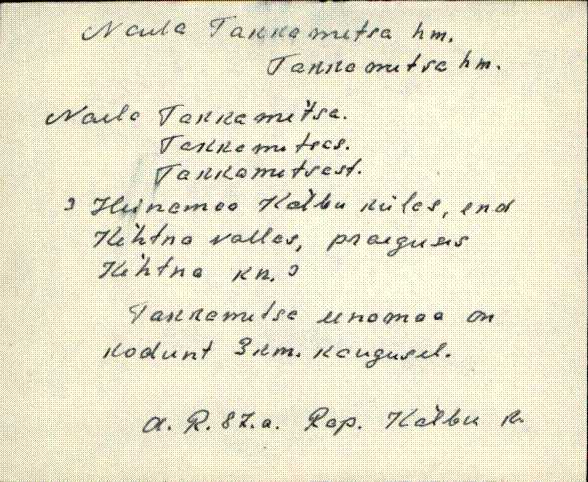 Naula Takkametsa hm.
Takkametsa hm.
Naula Takkamètsa.
Takkametsas.
Takkametsast.
Heinamaa Kälbu külas, end
Kèhtna vallas, praeguses
Kèhtna kn.
Takkametsa einamaa on
kodunt 3 km. kaugusel.
A. R. 87. a. Rap. Kälbu k.